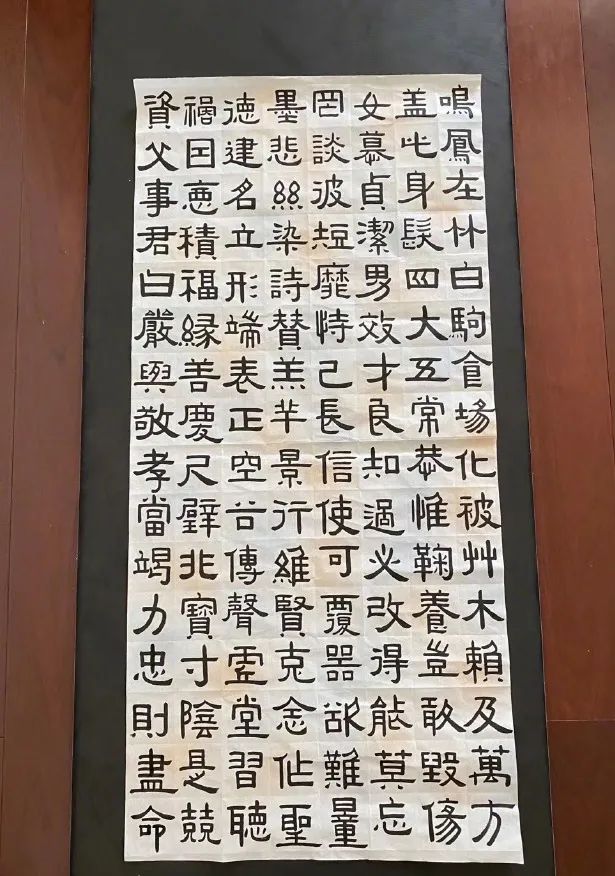 鳴鳳在竹白駒食場化被艸木賴及萬方
盖此身髮四大五常恭惟鞠養豈敢毀傷
女慕貞潔男效才良知過必改得能莫忘
罔談彼短靡恃己長信使可覆器欲難量
墨悲絲染詩賛羔羊景行維賢克念作聖
徳建名立形端表正空谷傳聲虛堂習聽
禍因惡積福縁善慶尺璧非寶寸陰是競
資父事君曰嚴與敬孝當竭力忠則盡命